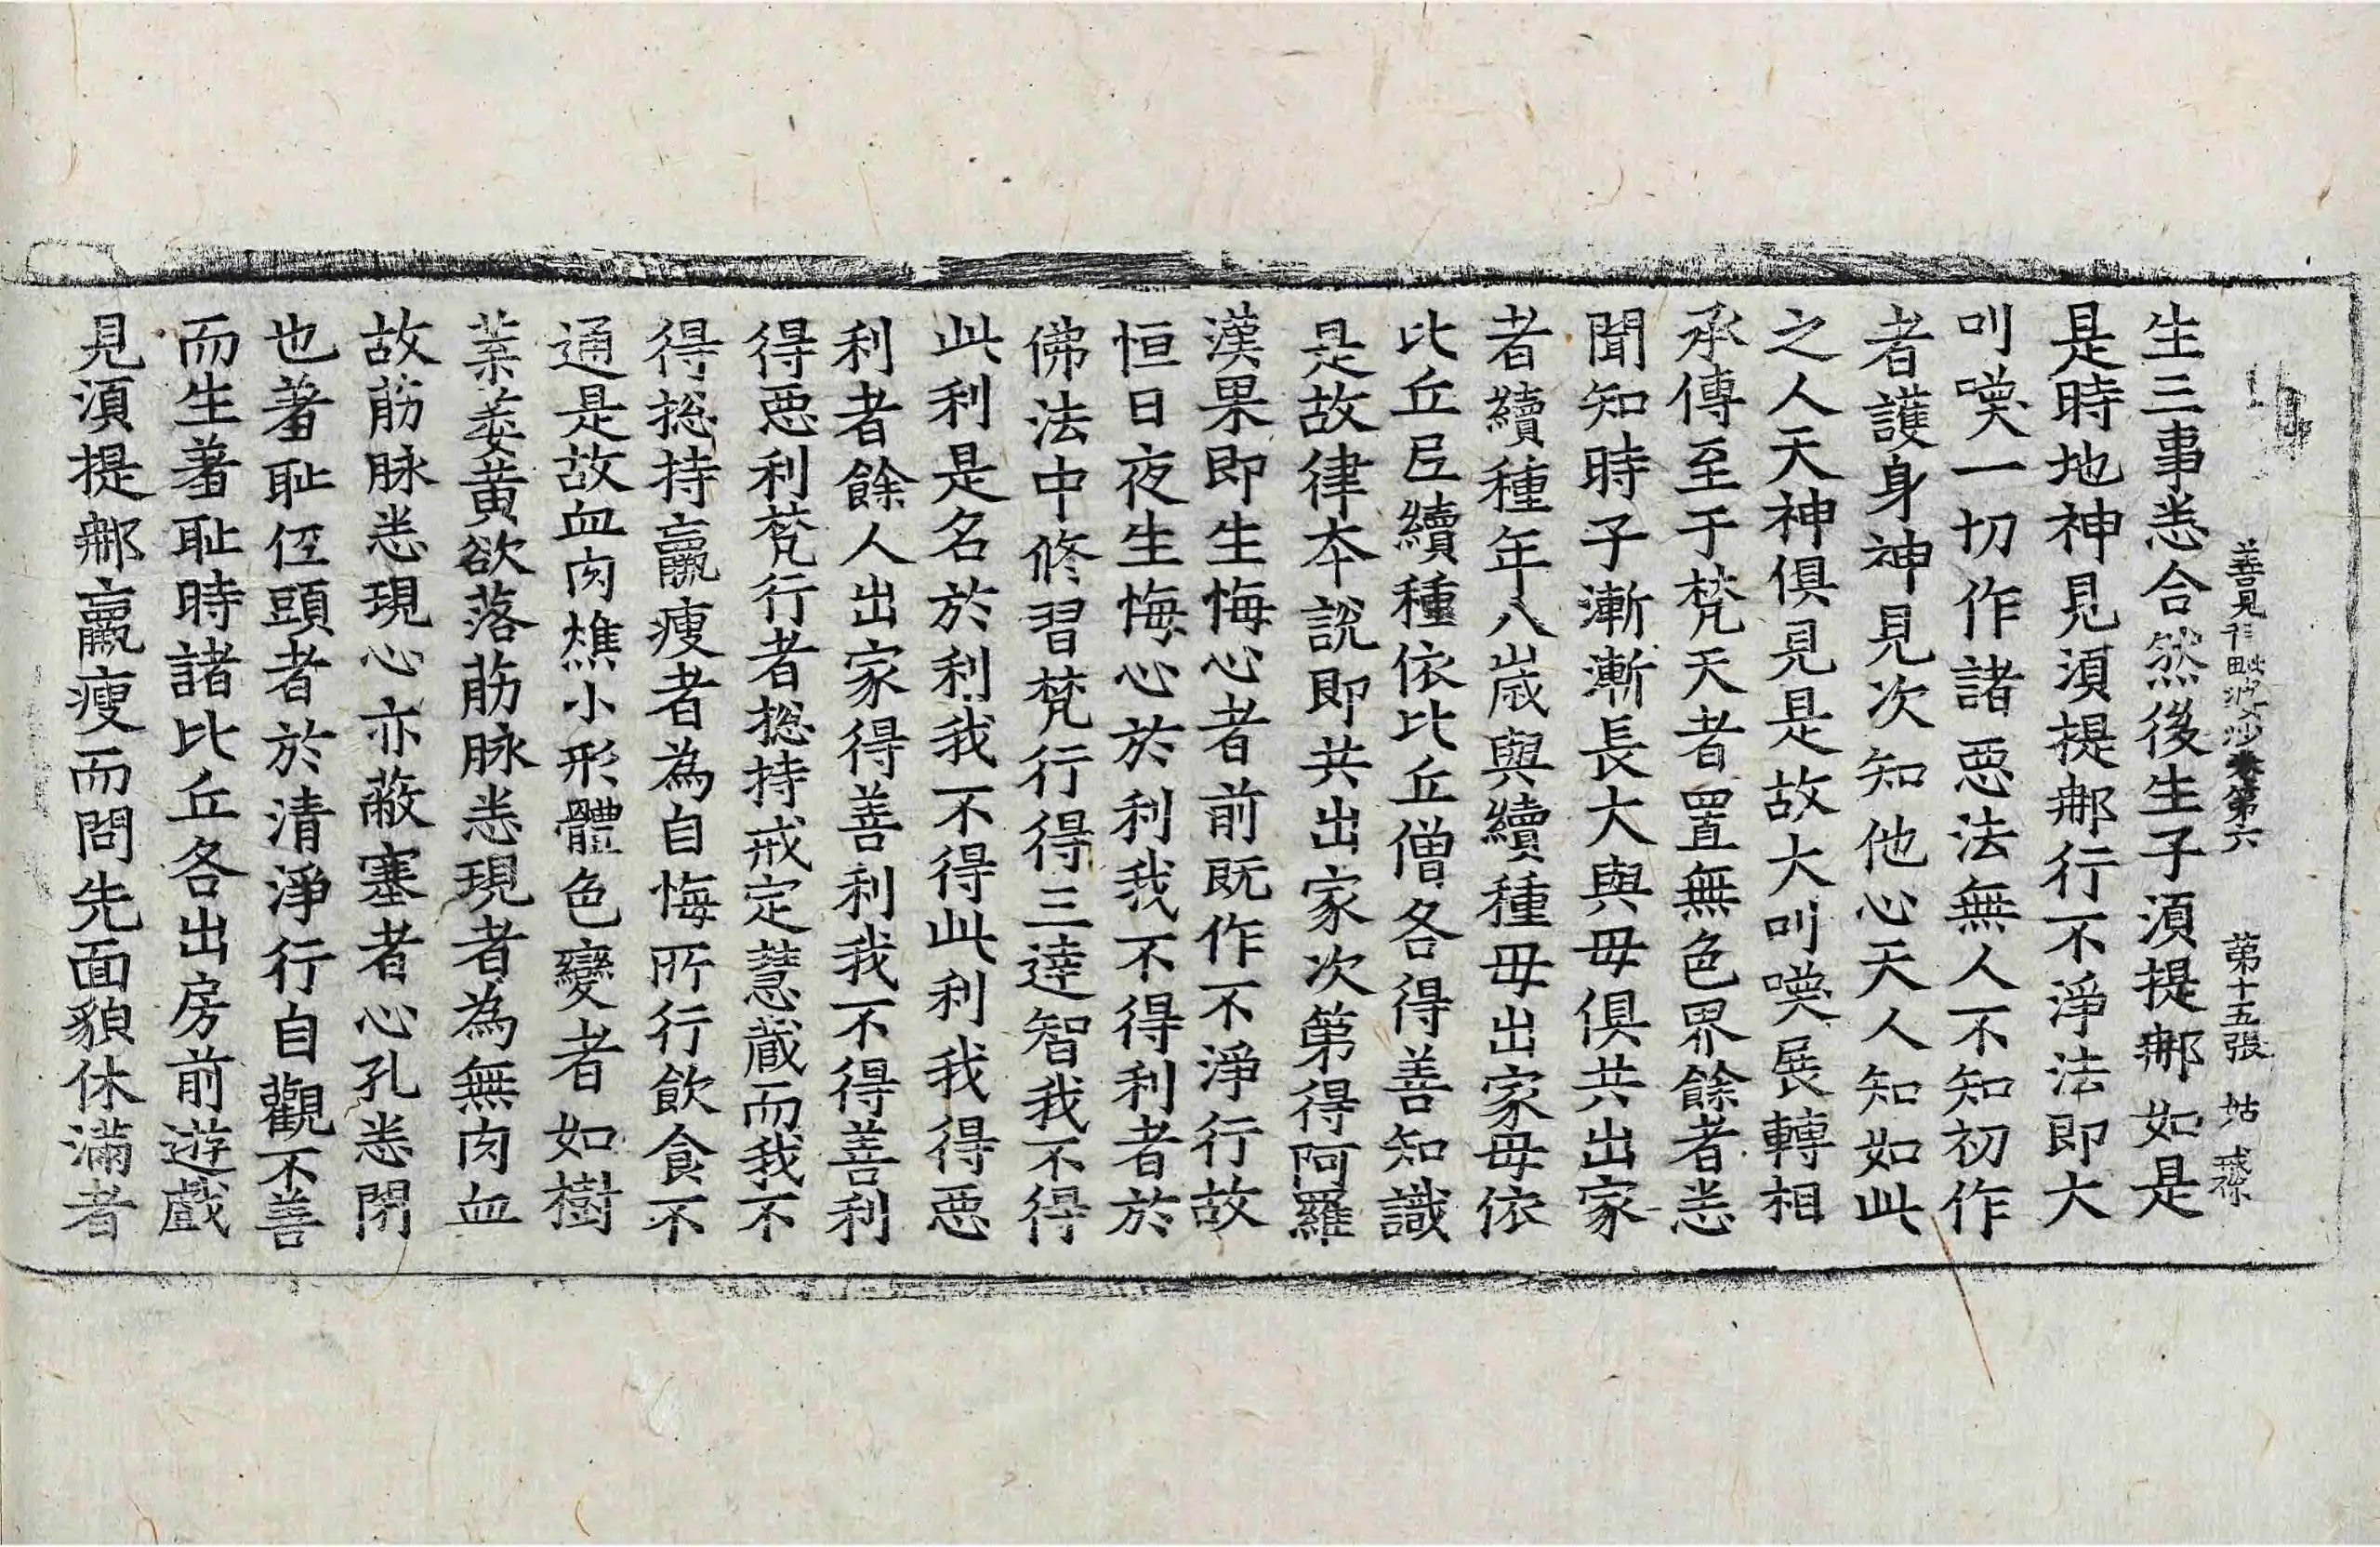 善見律毗婆沙卷第六　第十五張　姑
生三事悉合然後生子湏提𨚗如是
是時地神見湏提𨚗行不淨法即大
叫喚一切作諸悪法無人不知初作
者護身神見次知他心天人知如此
之人天神俱見是故大叫喚展轉相
承傳至于梵天者置無色界餘者悉
聞知時子漸漸長大與毋俱共出家
者續種年八歲與續種毋出家毋依
比丘𡰱續種依比丘僧各得善知識
是故律夲說即共出家次第得阿羅
漢果即生悔心者前既作不淨行故
恒日夜生悔心於利我不得利者於
佛法中修習梵行得三達智我不得
此利是名於利我不得此利我得悪
利者餘人出家得善利我不得善利
得悪利梵行者揔持戒定慧藏而我不
得揔持羸瘦者為自悔所行飲食不
通是故血肉燋小形體色變者如樹
葉萎黄欲落筋脉悉現者為無肉血
故筋脉悉現心亦蔽塞者心孔悉閉
也著耻低頭者於清淨行自觀不善
而生著耻時諸比丘各出房前遊戲
見湏提𨚗羸瘦而問先面貌休滿者